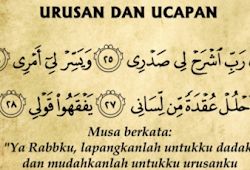 URUSAN DAN UCAPAN
رَبِّ اشْرَحْ لِي صَدْرِي ٢٥ وَيَسِّرْ لِي أَمْرِي
احْلُلْ عُقْدَةً مِّن لِّسَانِي ٢٧ يَفْقَهُوا قَوْلِي ٢٨
Musa berkata:
"Ya Rabbku, lapangkanlah untukku dadak
dan mudahkanlah untukku urusanku